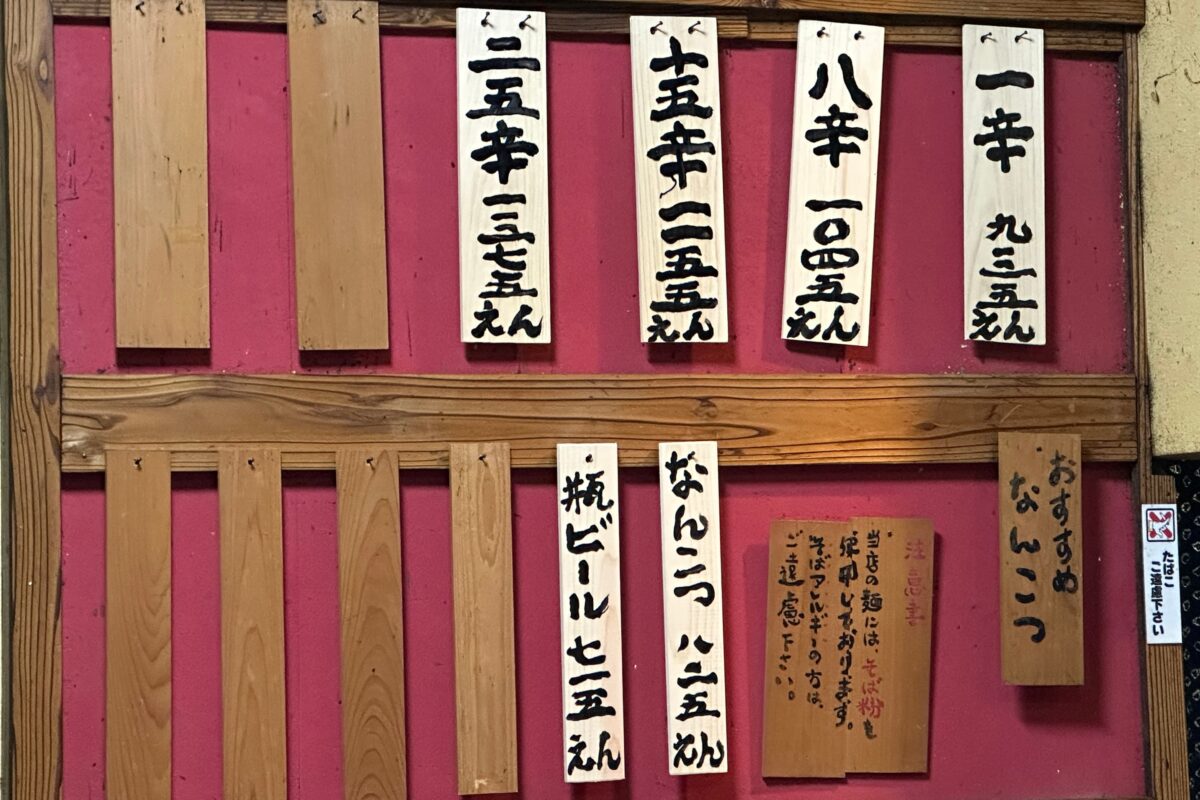 一辛 九三五えん
八辛 一〇四五えん
十五辛 一一五五えん
二五辛 一三七五えん
おすすめ
なんこつ
注意書
当店の麺には、そば粉を
使用しております。
そばアレルギーの方は、
ご遠慮下さい。
なんこつ 八二五えん
瓶ビール 七一五えん
たばこ
ご遠慮下さい